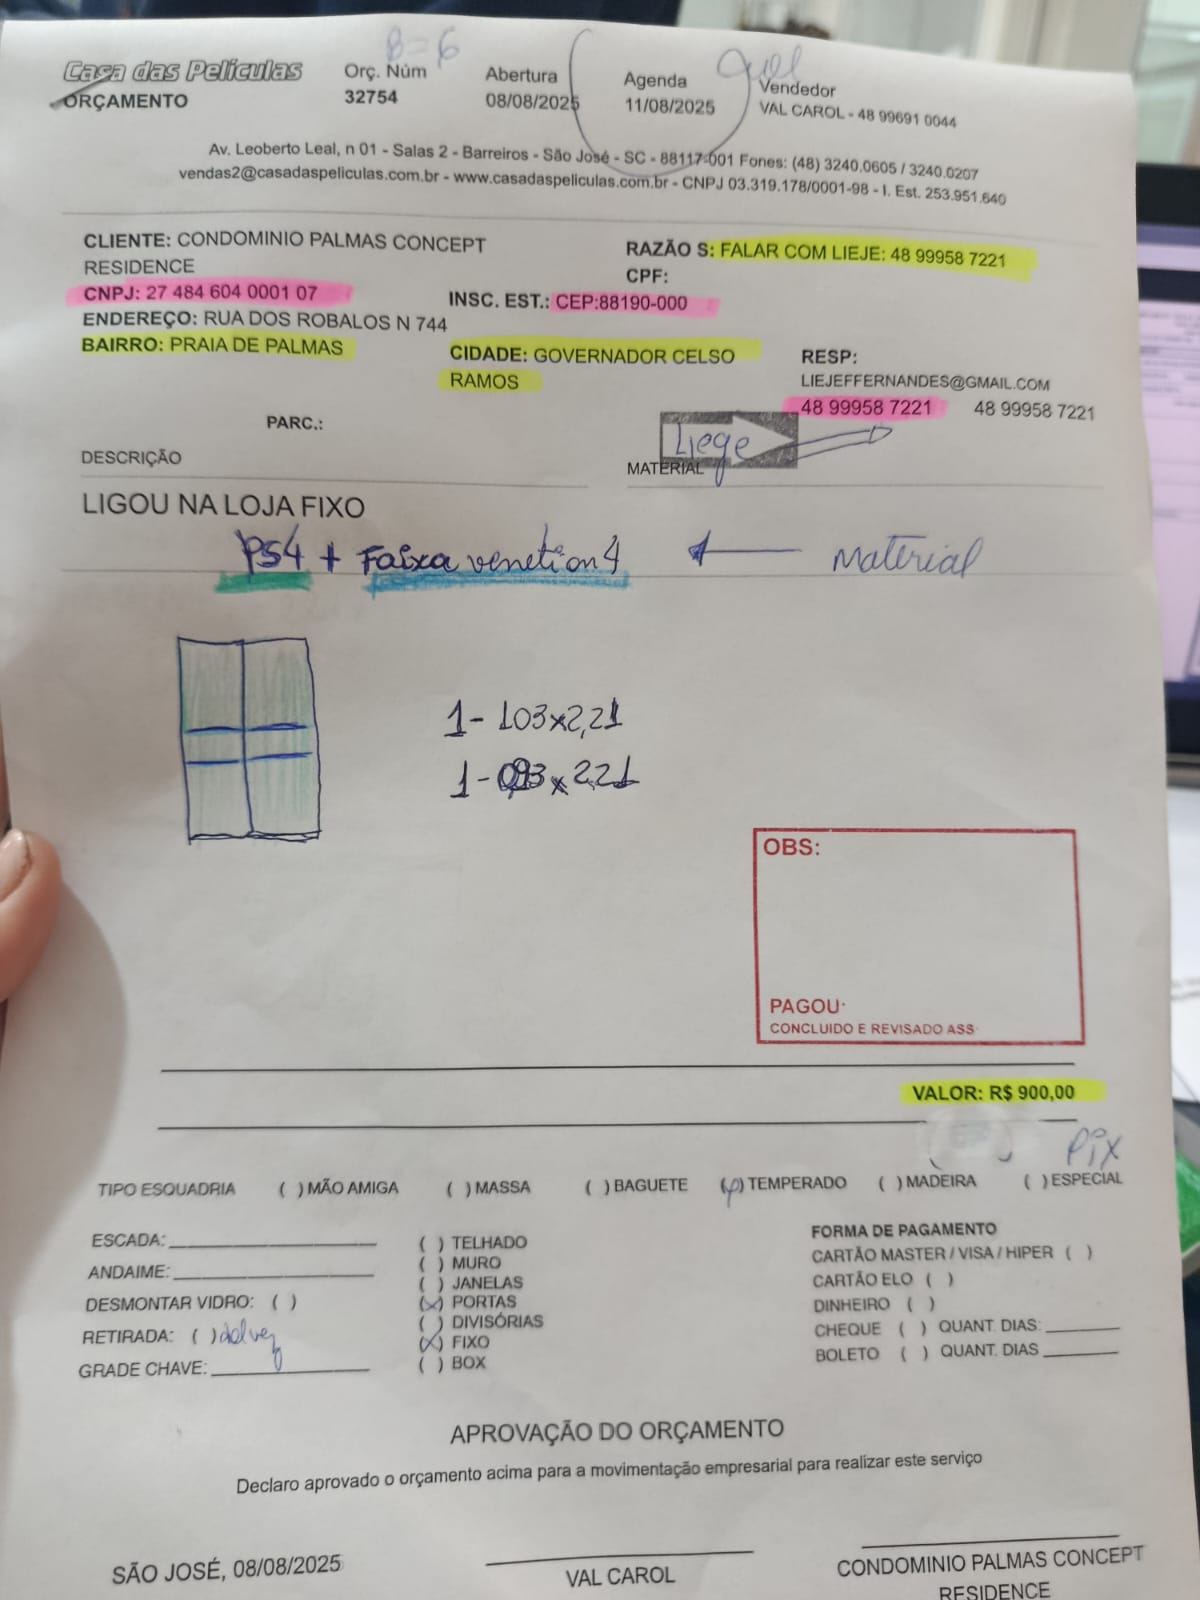 B=6
Casa das Películas
ORÇAMENTO
Orç. Núm
32754
Abertura
08/08/2025
Agenda
11/08/2025
Vendedor
VAL CAROL - 48 99691 0044
Av. Leoberto Leal, n 01 - Salas 2 - Barreiros - São José - SC - 88117-001 Fones: (48) 3240.0605 / 3240.0207
vendas2@casadaspeliculas.com.br - www.casadaspeliculas.com.br - CNPJ 03.319.178/0001-98 - I. Est. 253.951.640
CLIENTE: CONDOMINIO PALMAS CONCEPT
RESIDENCE
RAZÃO S: FALAR COM LIEJE: 48 99958 7221
CPF:
CNPJ: 27 484 604 0001 07
INSC. EST.: CEP:88190-000
ENDEREÇO: RUA DOS ROBALOS N 744
BAIRRO: PRAIA DE PALMAS
CIDADE: GOVERNADOR CELSO
RAMOS
RESP:
LIEJEFFERNANDES@GMAIL.COM
48 99958 7221 48 99958 7221
PARC.:
Liege
DESCRIÇÃO
MATERIAL
LIGOU NA LOJA FIXO
PS4 + Faixa venetion 4
Material
1- 103x2,21
1- 093x2,21
OBS:
PAGOU:
CONCLUIDO E REVISADO ASS
VALOR: R$ 900,00
Pix
TIPO ESQUADRIA ( ) MÃO AMIGA ( ) MASSA ( ) BAGUETE ( ) TEMPERADO ( ) MADEIRA ( ) ESPECIAL
ESCADA:
ANDAIME:
DESMONTAR VIDRO: ( )
RETIRADA: ( ) delvez
GRADE CHAVE:
( ) TELHADO
( ) MURO
( ) JANELAS
(x) PORTAS
( ) DIVISÓRIAS
(x) FIXO
( ) BOX
FORMA DE PAGAMENTO
CARTÃO MASTER / VISA / HIPER ( )
CARTÃO ELO ( )
DINHEIRO ( )
CHEQUE ( ) QUANT. DIAS:
BOLETO ( ) QUANT. DIAS
APROVAÇÃO DO ORÇAMENTO
Declaro aprovado o orçamento acima para a movimentação empresarial para realizar este serviço
SÃO JOSÉ, 08/08/2025
VAL CAROL
CONDOMINIO PALMAS CONCEPT
RESIDENCE